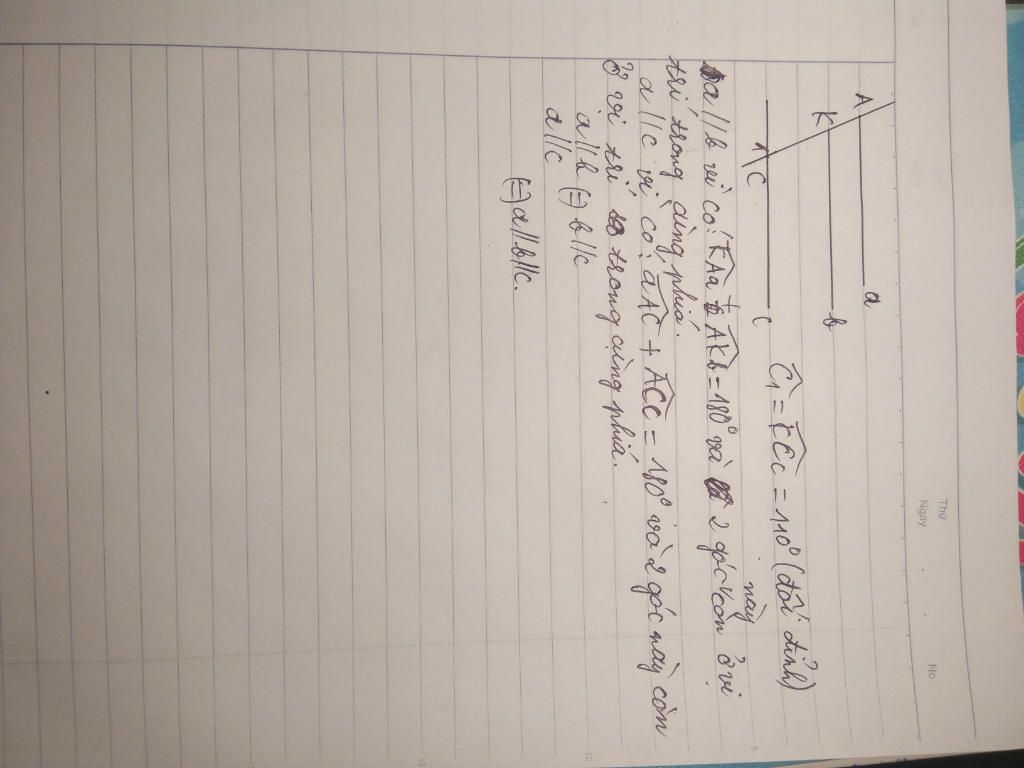 Thứ
Ngày
No.
A a
K b
1 C c
Ĉ₁ = K̂Cc = 110° (đối đỉnh)
a // b vì có: K̂Aa + ÂKb = 180° và 2 góc này còn ở vị
trí trong cùng phía.
a // c vì có: âAC + ÂCc = 180° và 2 góc này còn
ở vị trí trong cùng phía.
a // b (=) b // c
a // c
(=) a // b // c.
5
10
15